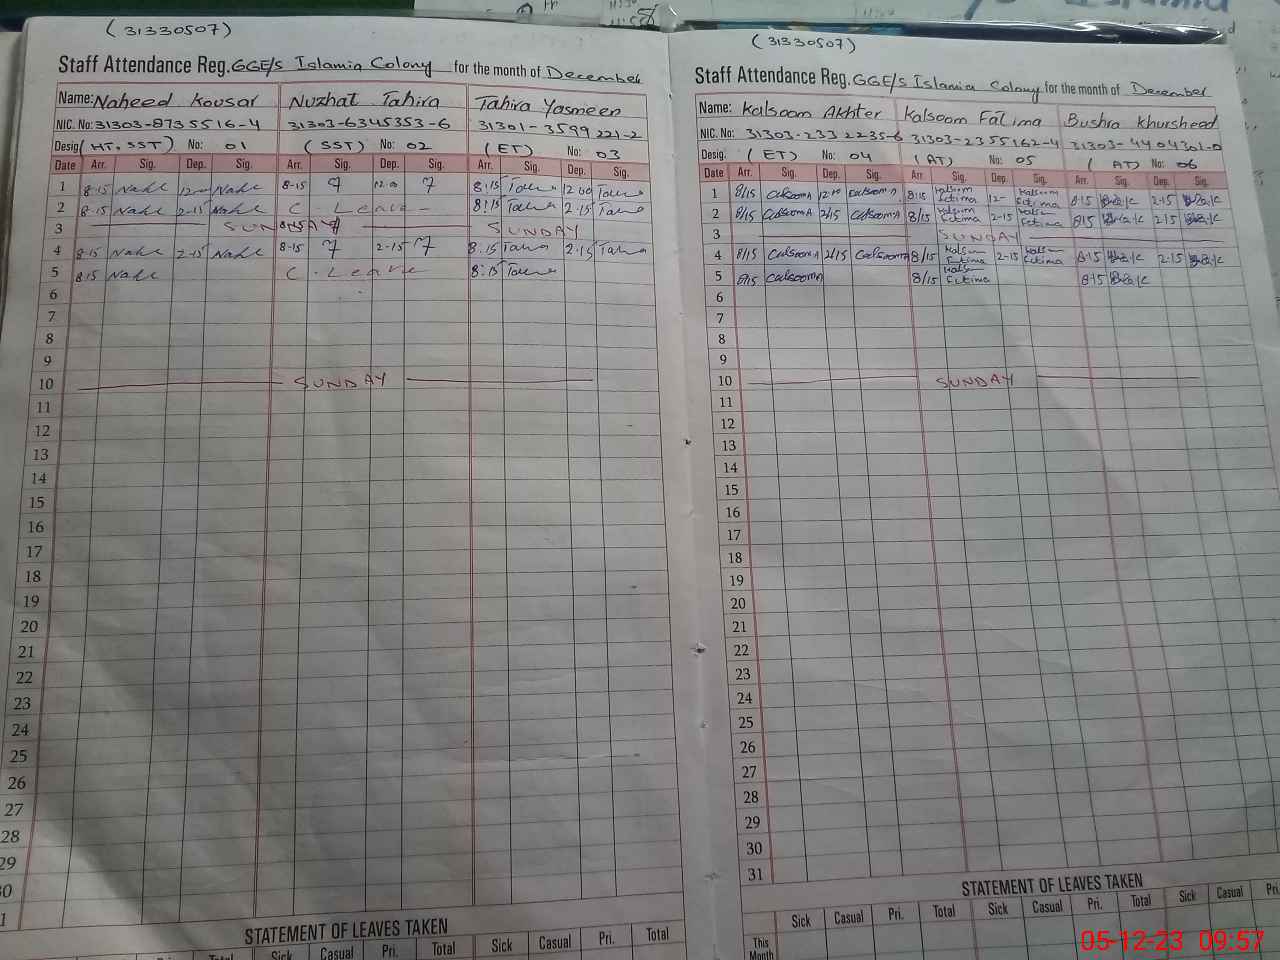 (31330507)
Staff Attendance Reg. GGE/s Islamia Colony for the month of December
Name: Naheed Kousar Nuzhat Tahira Tahira Yasmeen
NIC. No: 31303-8735516-4 31303-6345353-6 31301-3599221-2
Desig (HT. SST) No: 01 (SST) No: 02 (ET) No: 03
Date Arr. Sig. Dep. Sig. Arr. Sig. Dep. Sig. Arr. Sig. Dep. Sig.
1 8-15 12-00 8-15 12.00 8:15 12 00
2 8-15 2-15 C. Leave 8:15 2-15
3 SUNDAY SUNDAY
4 8-15 2-15 8-15 2-15 8:15 2-15
5 8-15 C. Leave 8:15
6
7
8
9
10 SUNDAY
11
12
13
14
15
16
17
18
19
20
21
22
23
24
25
26
27
28
29
30
1
STATEMENT OF LEAVES TAKEN
Casual Pri. Total Sick Casual Pri. Total
(31330507)
Staff Attendance Reg. GGE/s Islamia Colony for the month of December
Name: Kalsoom Akhter Kalsoom Fatima Bushra Khursheed
NIC. No: 31303-2332235-6 31303-2355162-4 31303-4404301-0
Desig: (ET) No: 04 (AT) No: 05 (AT) No: 06
Date Arr. Sig. Dep. Sig. Arr. Sig. Dep. Sig. Arr. Sig. Dep. Sig.
1 8/15 CalsoomA 12:00 CalsoomA 8:15 Kalsoom Fatima 12- Kalsoom Fatima 8-15 2-15
2 8/15 CalsoomA 2/15 CalsoomA 8/15 Kalsoom Fatima 2-15 Kalsoom Fatima 8-15 2.15
3 SUNDAY
4 8/15 CalsoomA 2/15 CalsoomA 8/15 Kalsoom Fatima 2-15 Kalsoom Fatima 8-15 2.15
5 8/15 CalsoomA 8/15 Kalsoom Fatima 8-15
6
7
8
9
10 SUNDAY
11
12
13
14
15
16
17
18
19
20
21
22
23
24
25
26
27
28
29
30
31
STATEMENT OF LEAVES TAKEN
Sick Casual Pri. Total Sick Casual Pri. Total Sick Casual Pri.
This Month
05-12-23 09:57